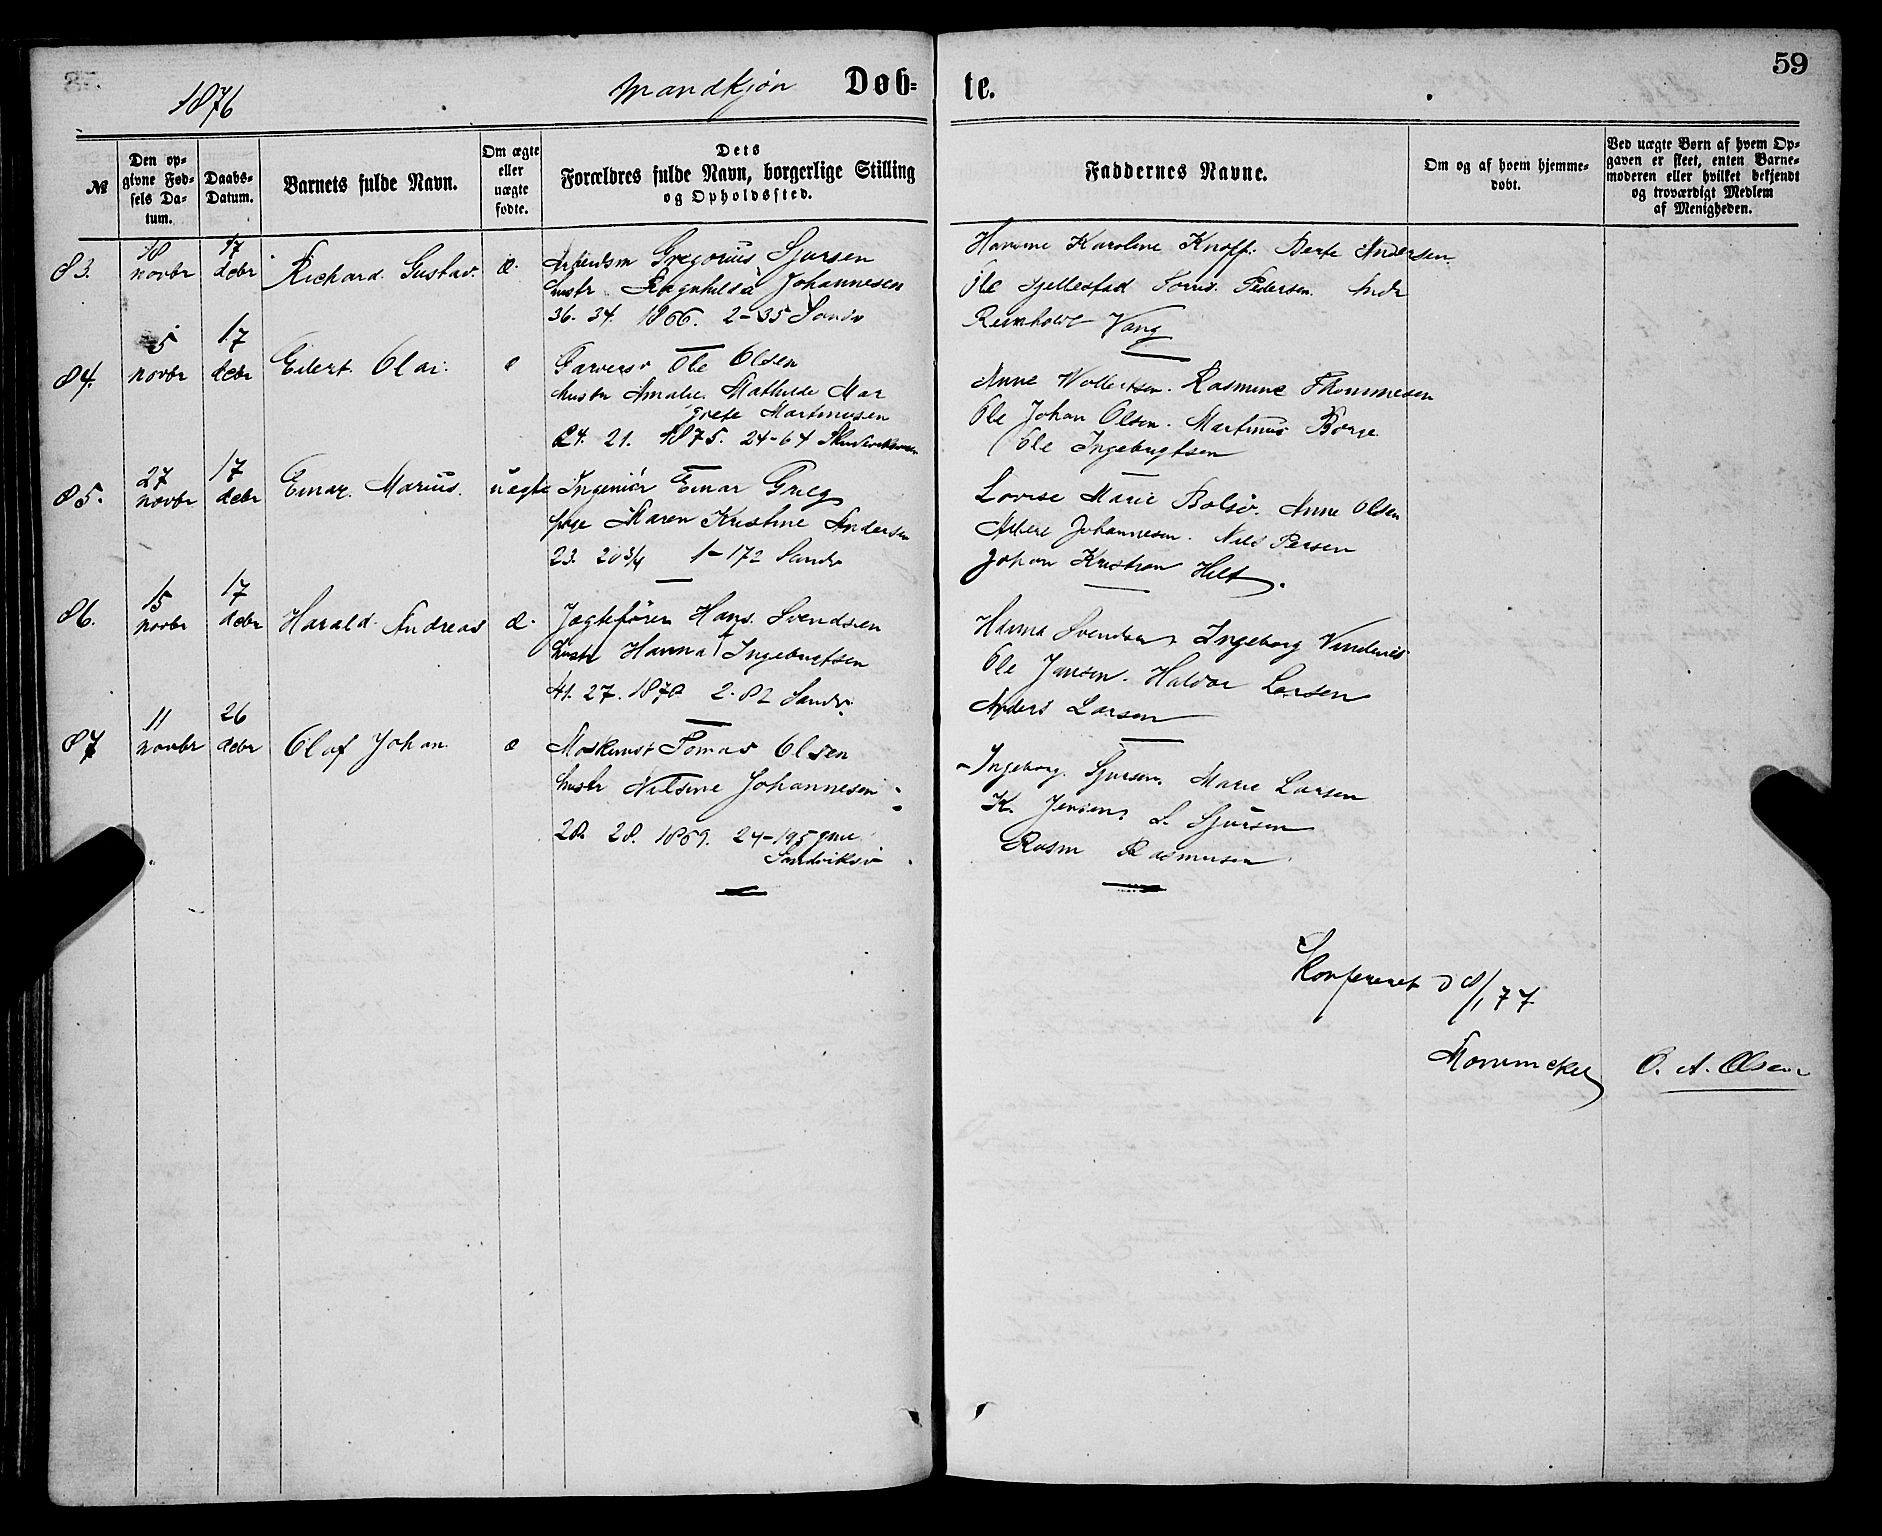 59
1876
Mandkjøn Døb-
te.
№
Den op-
givne Fød-
sels Da-
tum.
Daabs-
Datum.
Barnets fulde Navn.
Om ægte
eller
uægte
fødte.
Dets
Forældres fulde Navn, borgerlige Stilling
og Opholdssted.
Faddernes Navne.
Om og af hvem hjemme-
døbt.
Ved uægte Børn af hvem Op-
gaven er skeet, enten Barne-
moderen eller hvilket bekjendt
og troværdigt Medlem
af Menigheden.
83.
18
novbr
17
debr
Richard Gustav.
æ.
Arbeidsm Gregorius Sjursen
hustr Ragnhilda Johannesen
36. 34. 1866. 2-35 Sandv
Hanne Karoline Knoff. Berte Andersen.
Ole Gjellestad Toms. Pedersen. Andr
Reinholdt Vang
84.
5
novbr
17
debr
Eilert Olai.
Garversv Ole Olsen
hustr Amalie Mathilde Mar
grete Martinusen
24. 21. 1875. 24-64
Anne Wollertsen. Rasmine Thommesen
Ole Johan Olsen. Martinus Borge
Ole Ingebrigtsen
85.
27
novbr
17
debr
Einar Marius.
uægte
Ingeniör Einar Grieg
pige Maren Kristine Andersen
23. 20 3/4 1-172 Sandv
Lovise Marie Bolsö. Anne Olsen
Johannesen. Nils Persen
Johan Kristian Hilt.
86.
15
novbr
17
debr
Harald Andreas
æ.
Jægtefører Hans Svendsen
hustr Hanna Ingebrigtsen
41. 27. 1872 2-82 Sandv
Hanna Svendsen, Ingeborg Vindenes
Ole Jansen. Haldor Larsen
Anders Larsen
87
11
novbr
26
debr
Olaf Johan
Maskinist Tomas Olsen
hustr Nilsine Johannesen
28. 28. 1869. 24-195
Sandviksv
Ingeborg Sjursen. Marie Larsen
K. Jensen, S. Sjursen
Rasm Rasmusen
Konfereret d 8/1 77
O. A. Olsen